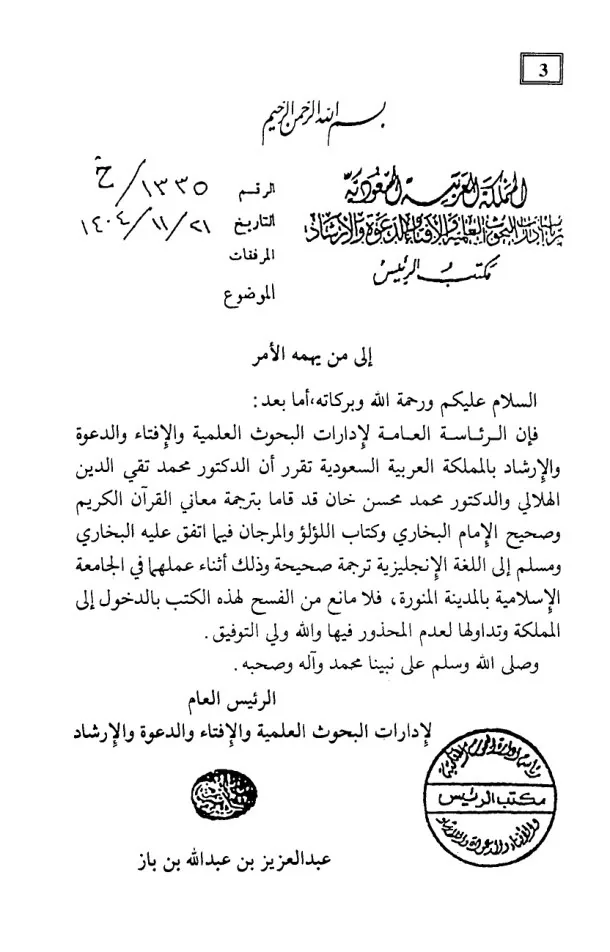 3
بسم الله الرحمن الرحيم
المملكة العربية السعودية
رئاسة إدارات البحوث العلمية والإفتاء والدعوة والإرشاد
مكتب الرئيس
الرقم ١٣٣٥/خ
التاريخ ١٤٠٤/١١/٢١
المرفقات
الموضوع
إلى من يهمه الأمر
السلام عليكم ورحمة الله وبركاته،أما بعد:
فإن الرئاسة العامة لإدارات البحوث العلمية والإفتاء والدعوة
والإرشاد بالمملكة العربية السعودية تقرر أن الدكتور محمد تقي الدين
الهلالي والدكتور محمد محسن خان قد قاما بترجمة معاني القرآن الكريم
وصحيح الإمام البخاري وكتاب اللؤلؤ والمرجان فيما اتفق عليه البخاري
ومسلم إلى اللغة الإنجليزية ترجمة صحيحة وذلك أثناء عملهما في الجامعة
الإسلامية بالمدينة المنورة، فلا مانع من الفسح لهذه الكتب بالدخول إلى
المملكة وتداولها لعدم المحذور فيها والله ولي التوفيق.
وصلى الله وسلم على نبينا محمد وآله وصحبه.
الرئيس العام
لإدارات البحوث العلمية والإفتاء والدعوة والإرشاد
مكتب الرئيس
والإفتاء والدعوة والإرشاد
عبدالعزيز بن عبدالله بن باز